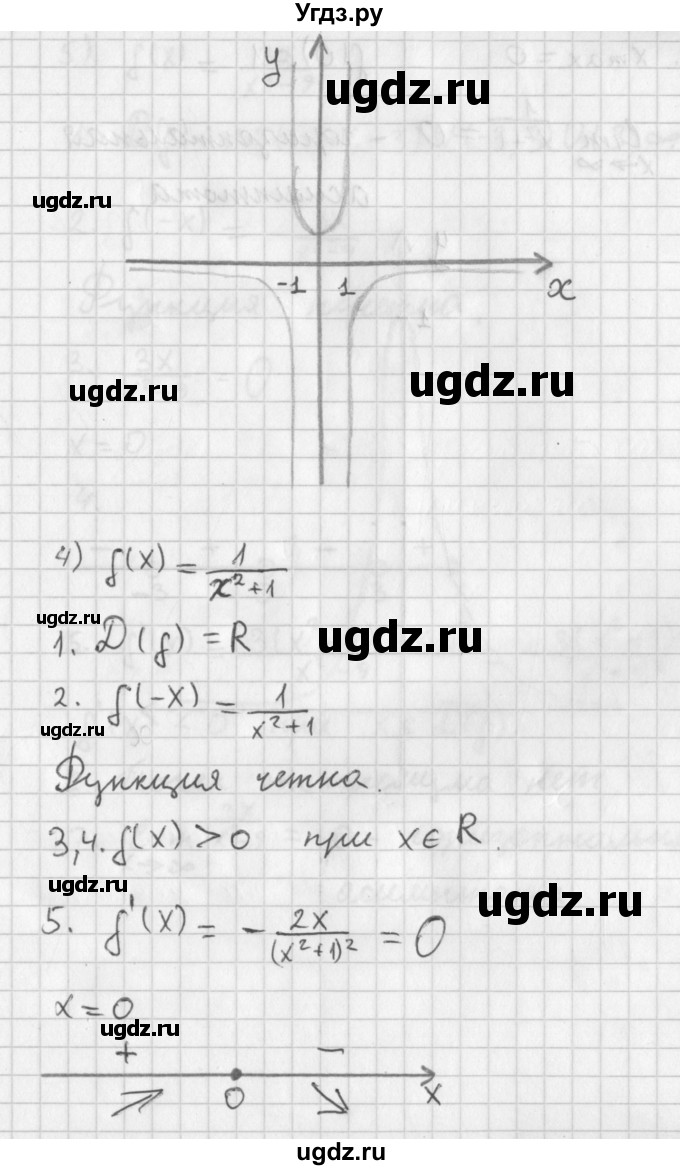 Угдз.ру
y
ugdz.ru
ugdz.ru
-1 1 x
ugdz.ru
ugdz.ru
4) f(x) = 1/(x²+1)
ugdz.ru
1. D(f) = R
ugdz.ru
2. f(-x) = 1/(x²+1)
ugdz.ru
Функция четна.
3,4. f(x) > 0 при x ∈ R.
ugdz.ru
ugdz.ru
5. f'(x) = - 2x/(x²+1)² = 0
x = 0
ugdz.ru
+ -
0 x
ugdz.ru